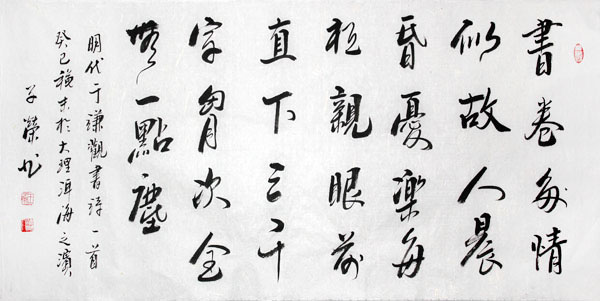 書卷多情
似故人晨
昏憂樂每
相親眼前
直下三千
字胸次全
無一點塵
明代于謙觀書詩一首
癸巳穐末於大理洱海之濱
子榮书